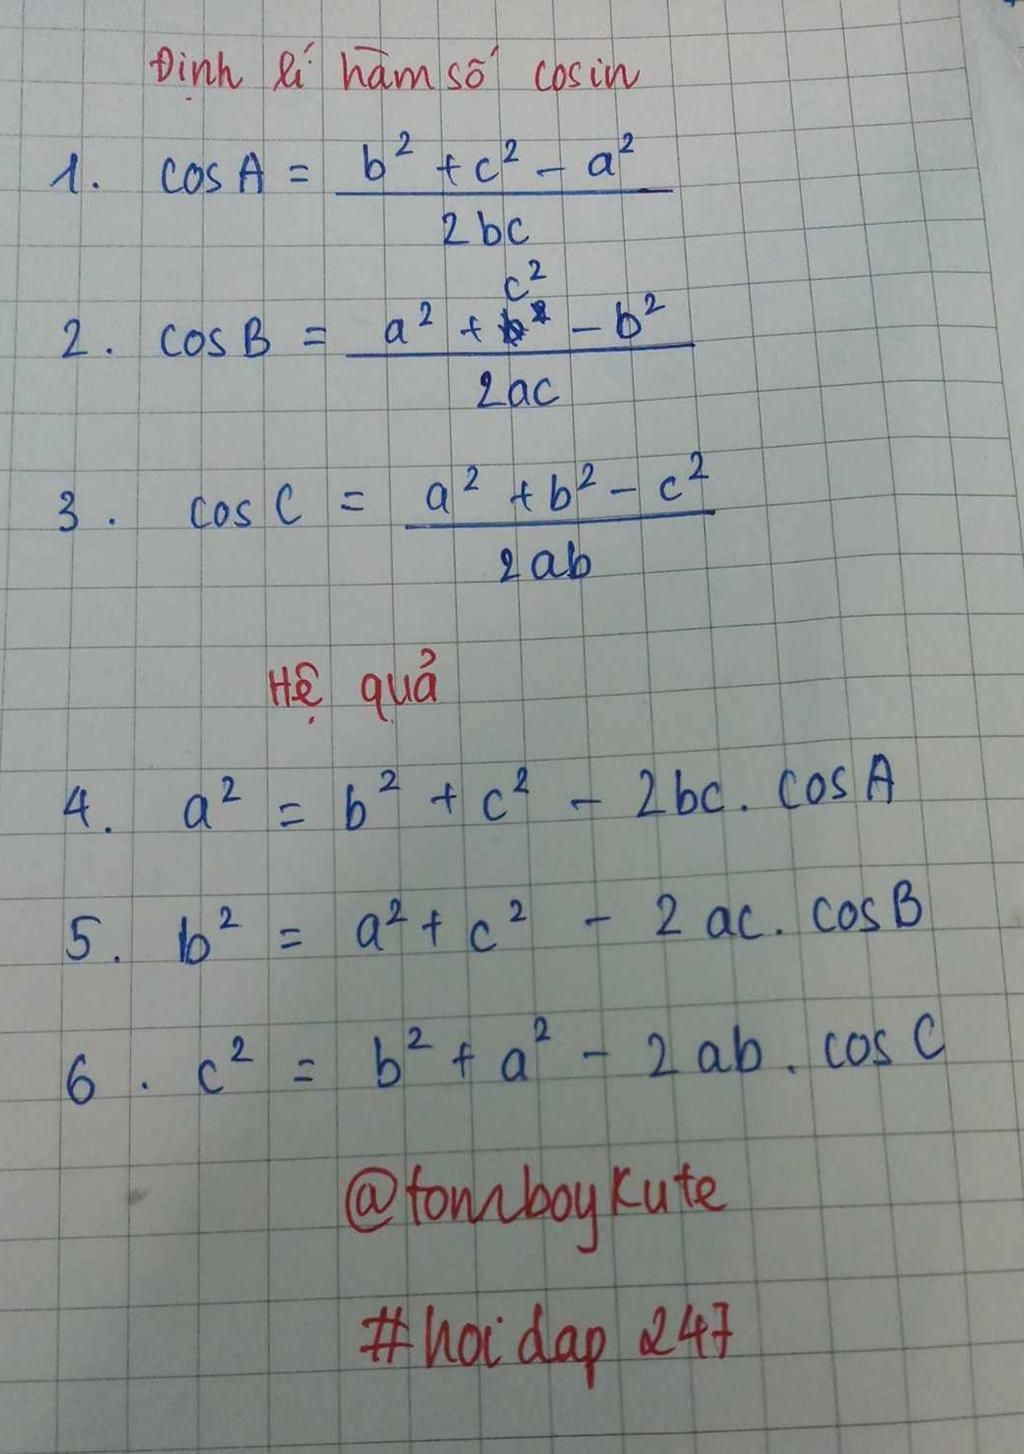 Định lí hàm số cosin
1. cos A = b² + c² - a² / 2bc
2. cos B = a² + c² - b² / 2ac
3. cos C = a² + b² - c² / 2ab
Hệ quả
4. a² = b² + c² - 2bc. cos A
5. b² = a² + c² - 2ac. cos B
6. c² = b² + a² - 2ab. cos C
@tomboykute
#hoidap 247